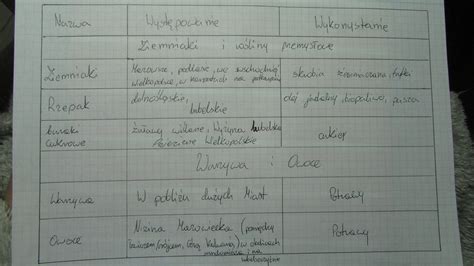 Nazwa Występowanie Wykorzystanie
Ziemniaki i rośliny przemysłowe
Ziemniaki Mazowsze, podlasie, we wschodniej
wielkopolsce, w Karpatach na skrobia ziemniaczana
Rzepak dolnośląskie, olej jadalny, biopaliwo, pasza
lubelskie
buraki Żuławy wiślane, Wyżyna lubelska
cukrowe Pojezierze Wielkopolskie cukier
Warzywa i Owoce
Warzywa W pobliżu dużych Miast Potrawy
Owoce Nizina Mazowiecka (pomiędzy Potrawy
Grójcem, Górą Kalwarią) w okolicach